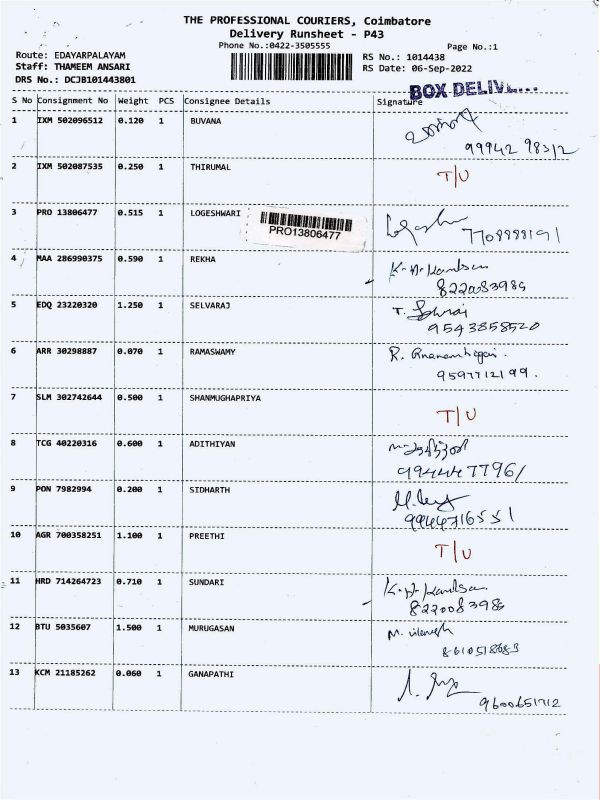 THE PROFESSIONAL COURIERS, Coimbatore
Delivery Runsheet - P43
Phone No.:0422-3505555
Page No.:1
Route: EDAYARPALAYAM
Staff: THAMEEM ANSARI
DRS No.: DCJB101443801
RS No.: 1014438
RS Date: 06-Sep-2022
BOX DELIVE...
S No Consignment No Weight PCS Consignee Details Signature
1 IXM 502096512 0.120 1 BUVANA
99942 98312
2 IXM 502087535 0.250 1 THIRUMAL T/U
3 PRO 13806477 0.515 1 LOGESHWARI
PRO13806477
7708888191
4 MAA 286990375 0.590 1 REKHA
8220083986
5 EDQ 23220320 1.250 1 SELVARAJ
9543858520
6 ARR 30298887 0.070 1 RAMASWAMY
9597712199.
7 SLM 302742644 0.500 1 SHANMUGHAPRIYA T/U
8 TCG 40220316 0.600 1 ADITHIYAN
9944477961
9 PON 7982994 0.200 1 SIDHARTH
9944716551
10 AGR 700358251 1.100 1 PREETHI T/U
11 HRD 714264723 0.710 1 SUNDARI
8220083986
12 BTU 5035607 1.500 1 MURUGASAN
8610518683
13 KCM 21185262 0.060 1 GANAPATHI
9600651712